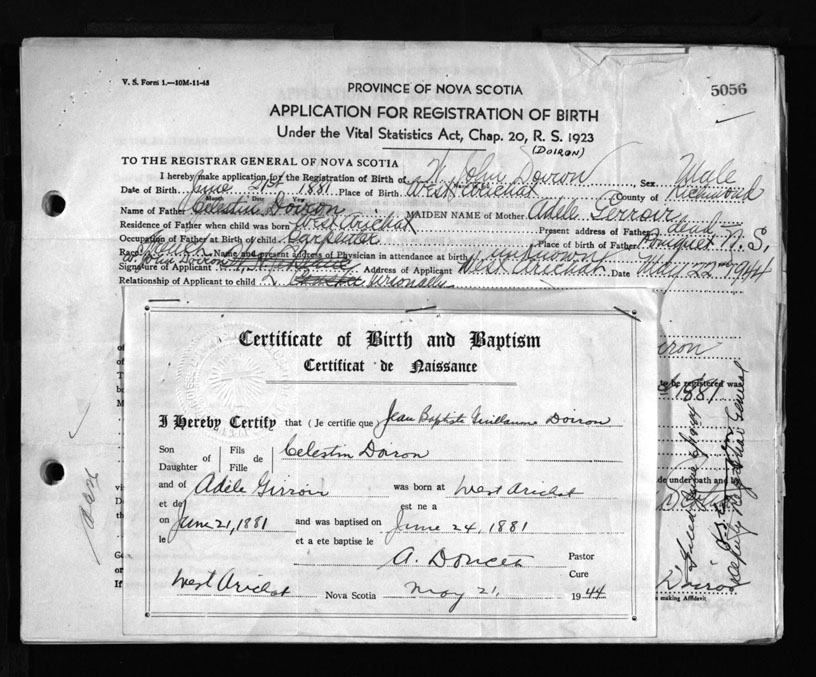 V. S. Form 1.—10M-11-43
5056
PROVINCE OF NOVA SCOTIA
APPLICATION FOR REGISTRATION OF BIRTH
Under the Vital Statistics Act, Chap. 20, R. S. 1923
(DOIRON)
TO THE REGISTRAR GENERAL OF NOVA SCOTIA
I hereby make application for the Registration of Birth of W. John Doiron Sex Male
Date of Birth June 21st 1881 Place of Birth West Arichat County of Richmond
Name of Father Celestin Doiron MAIDEN NAME of Mother Adele Gerroir
Residence of Father when child was born West Arichat Present address of Father dead
Occupation of Father at Birth of child Carpenter Place of Birth of Father Pomquet N. S.
Race French Name and present address of Physician in attendance at birth unknown
Signature of Applicant W. John Doiron Address of Applicant West Arichat Date May 22nd 1944
Relationship of Applicant to child Personally
Certificate of Birth and Baptism
Certificat de Naissance
I Hereby Certify that (Je certifie que) Jean Baptiste Guillaume Doiron
Son Daughter of Fils Fille de Celestin Doiron
and of Adele Girroir was born at West Arichat
et de est ne a
on June 21, 1881 and was baptised on June 24, 1881
le et a ete baptise le
A. Doucet Pastor
Cure
West Arichat Nova Scotia May 21, 1944
to be registered was
1881
de under oath and
Deputy Registrar General
Doiron
making Affidavit